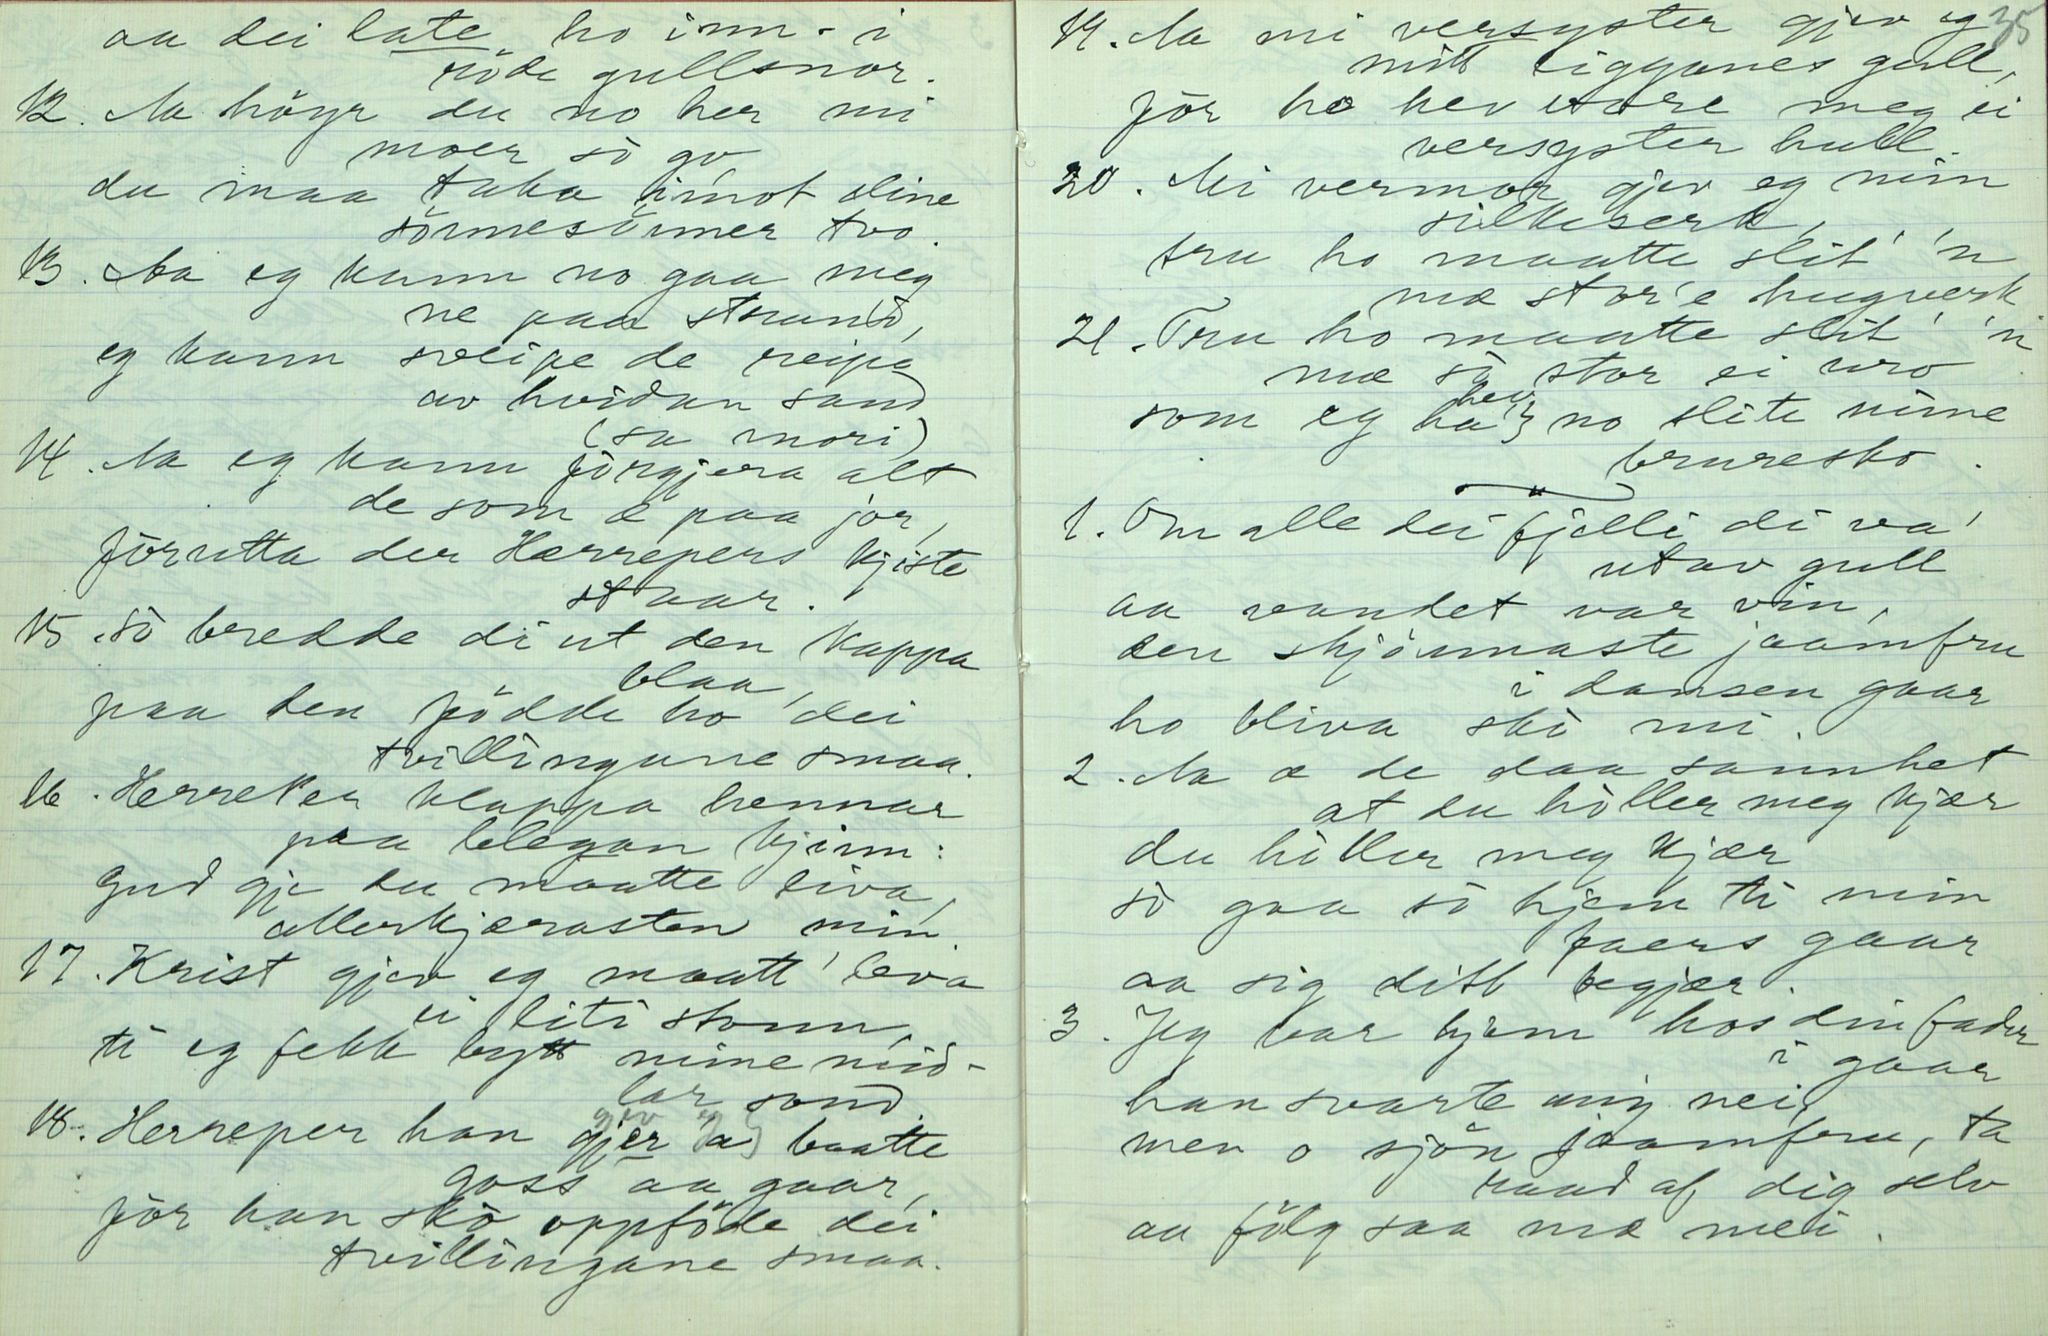 aa dei late ho inn - i
röde gullsnor.
12. Aa höyr du no her mi
moer sò go,
du maa taka imot dine
sönnesönner tvo.
13. Aa eg kann no gaa meg
ne paa strand,
eg kann sveipe de reipa
av hvidan sand
(sa mori)
14. Aa eg kann fòrgjera alt
de som æ paa jor,
fòrutta der Hærrepers kjiste
staar.
15. Sò bredde di ut den kappa
blaa,
paa den födde ho dei
tvillingane smaa.
16. Herreper klappa hennar
paa blegan kjinn:
Gud gje du maatte liva,
allerkjærasten min.
17. Krist gjev eg maatt' leva
ei liti stonn,
ti eg fekk bytt mine mid-
lar sond.
gjev eg
18. Herreper han gjer a} baatte
goss aa gaar,
fòr han skò oppföde dei
tvillingane smaa.
35
19. Aa mi versyster gjev eg
mitt ligganes gull,
fòr ho hev vore meg ei
versyster hull.
20. Mi vermor gjev eg min
silkeserk,
tru ho maatte slit' 'n
mæ stor'e hugverk
21. Tru ho maatte slit' 'n
mæ sò stor ei uro
hev
som eg ha} no slite mine
bruresko.
1. Om alle dei fjelli di va'
utav gull
aa vandet var vin,
den skjönnaste jaamfru
i dansen gaar
ho bliva skò mi.
2. Aa æ de daa sannhet
at du höller meg kjær
du höller meg kjær
sò gaa sò hjem ti min
faers gaar
aa sig ditt begjær.
3. Jeg var hjem hos din fader
i gaar
han svarte mig nei,
men o sjön jaamfru, ta
raad af dig selv
aa fölg saa mæ mei.